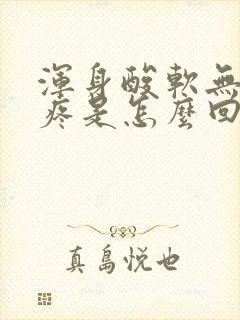 渾身酸軟無
疼是怎麼回
真島悅也